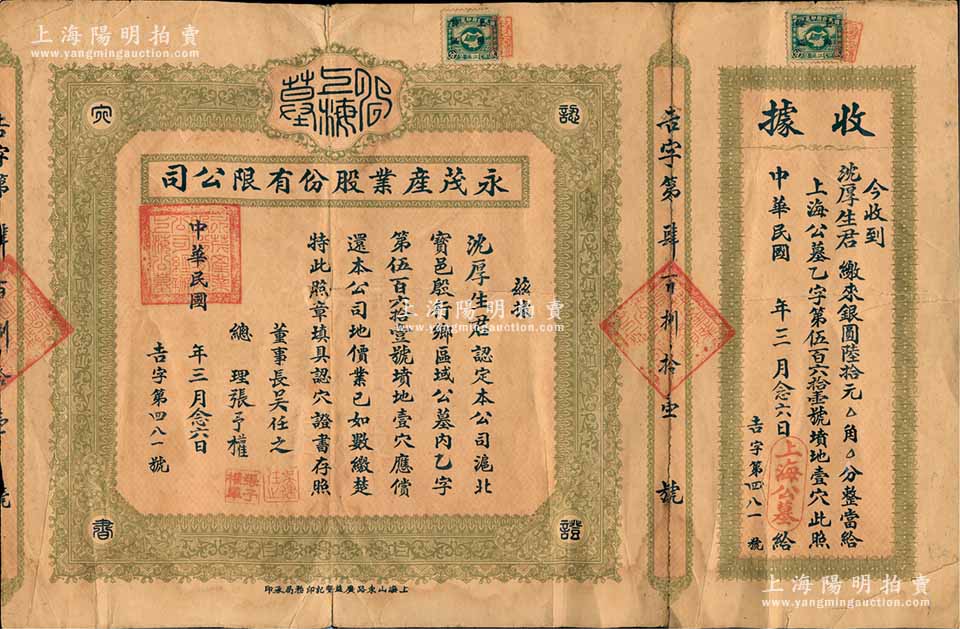 上海陽明拍賣
www.yangmingauction.com
上海陽明拍賣
www.yangmingauction.com
收據
今收到
沈厚生君 繳來銀圓陸拾元△角△分整當給
上海公墓乙字第伍百六拾壹號墳地壹穴此照
中華民國 年三月念六日 上海公墓 給
吉字第四八一號
吉字第肆百捌拾壹號
上海公墓
認穴證書
永茂產業股份有限公司
茲據
沈厚生君認定本公司滬北
寶邑殷行鄉區域公墓內乙字
第伍百六拾壹號墳地壹穴應償
還本公司地價業已如數繳楚
特此照章填具認穴證書存照
董事長吳任之
總理張予權
中華民國 年三月念六日
吉字第四八一號
吉字第肆百捌拾壹號
上海山東路廣益瑩記印務局承印
上海陽明拍賣
www.yangmingauction.com
上海陽明拍賣
www.yangmingauction.com